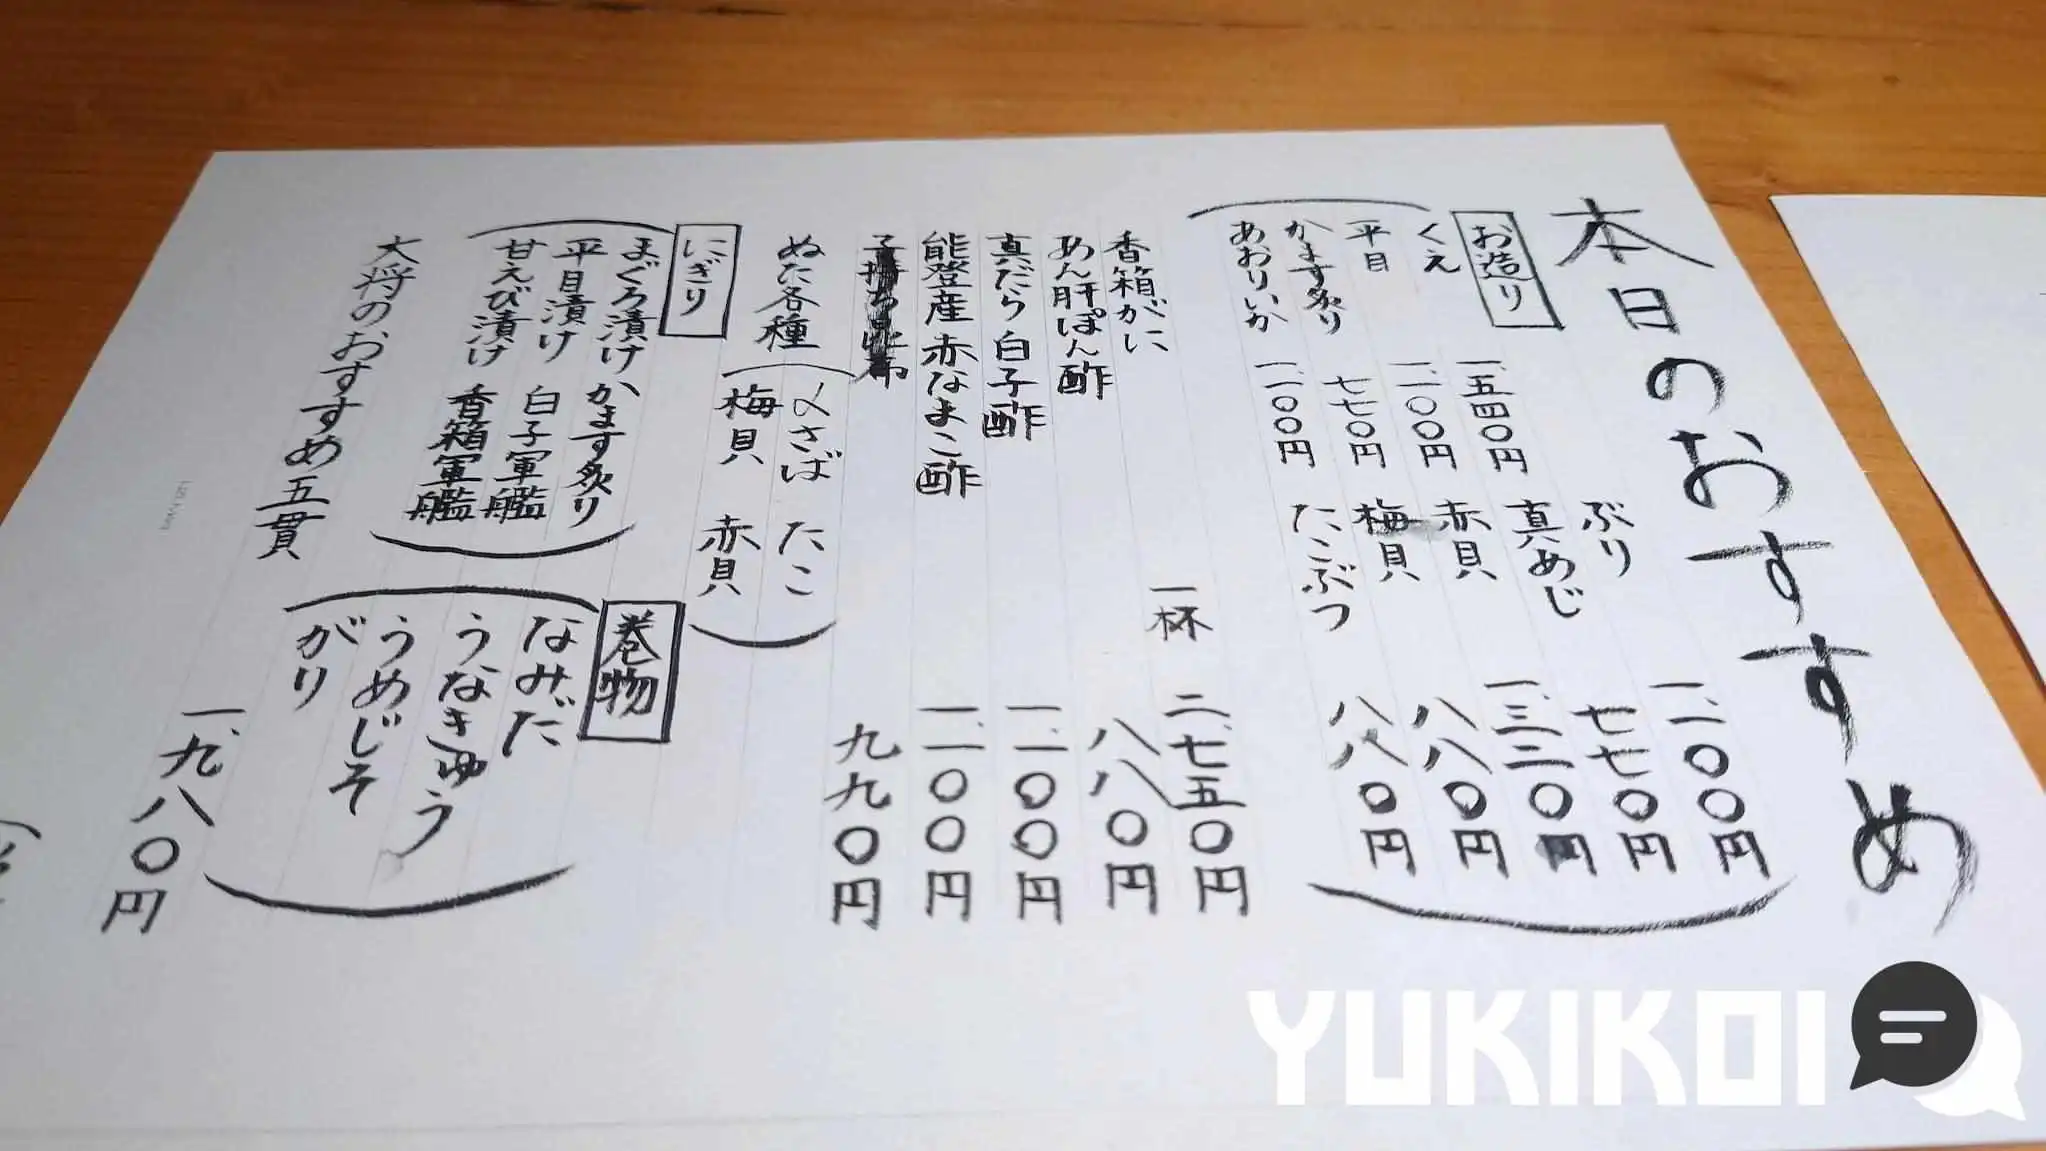 本日のおすすめ
お造り ぶり 一、一〇〇円
くえ 一、五四〇円 真めじ 七七〇円
平目 一、一〇〇円 赤貝 一、三二〇円
かます炙り 七七〇円 梅貝 八八〇円
あおりいか 一、一〇〇円 たこぶつ 八八〇円
香箱がに 一杯 二、七五〇円
あん肝ぽん酢 八八〇円
真だら白子酢 一、一〇〇円
能登産赤なまこ酢 一、一〇〇円
九九〇円
ぬた各種 〆さば たこ
梅貝 赤貝
にぎり
まぐろ漬け かます炙り
平目漬け 白子軍艦
甘えび漬け 香箱軍艦
巻物
なみだ
うなきゅう
うめじそ
がり
大将のおすすめ五貫 一、九八〇円
YUKIKOI